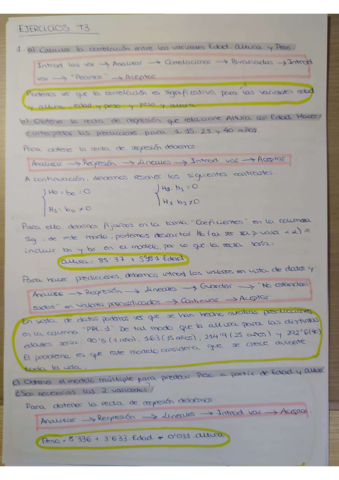 EJERCICIOS T3
1. a) Calcular la correlación entre las variables Edad, Altura y Peso.
Introd las var → Analizar → Correlaciones → Bivariadas → Introd
var → "Pearson" → Aceptar
Podemos ver que la correlación es significativa para las variables edad
y altura, edad y peso y peso y altura.
b) Obtener la recta de regresión que relacione Altura con Edad. Hacer
interpreta las predicciones para 1, 15, 25 y 40 años
Para obtener la recta de regresión debemos:
Analizar → Regresión → Lineales → Introd var → Aceptar
A continuación, debemos resolver los siguientes contrastes
H0: b0 = 0 H0: b1 = 0
H1: b0 ≠ 0 H1: b1 ≠ 0
Para ello, debemos fijarnos en la tabla "Coeficientes" en la columna
Sig. de este modo, podemos descartar H0 (ya se sea p valor < α) e
incluir b0 y b1 en el modelo, por lo que la recta será:
Para hacer predicciones, debemos introd los valores en vista de datos y:
Analizar → Regresión → Lineales → Guardar → "No estandari-
zados" en valores pronosticados → Continuar → Aceptar
En vista de datos podemos ver que se han hecho nuestras predicciones
en la columna "PRE_1". De tal modo que la altura para las distintas
edades será:
El problema es que este modelo considera que se crece durante
toda la vida.
c) Obtener el modelo múltiple para predecir Peso a partir de Edad y Altura
¿Son necesarias las 2 variables?
Para obtener la recta de regresión debemos:
Analizar → Regresión → Lineales → Introd var → Aceptar